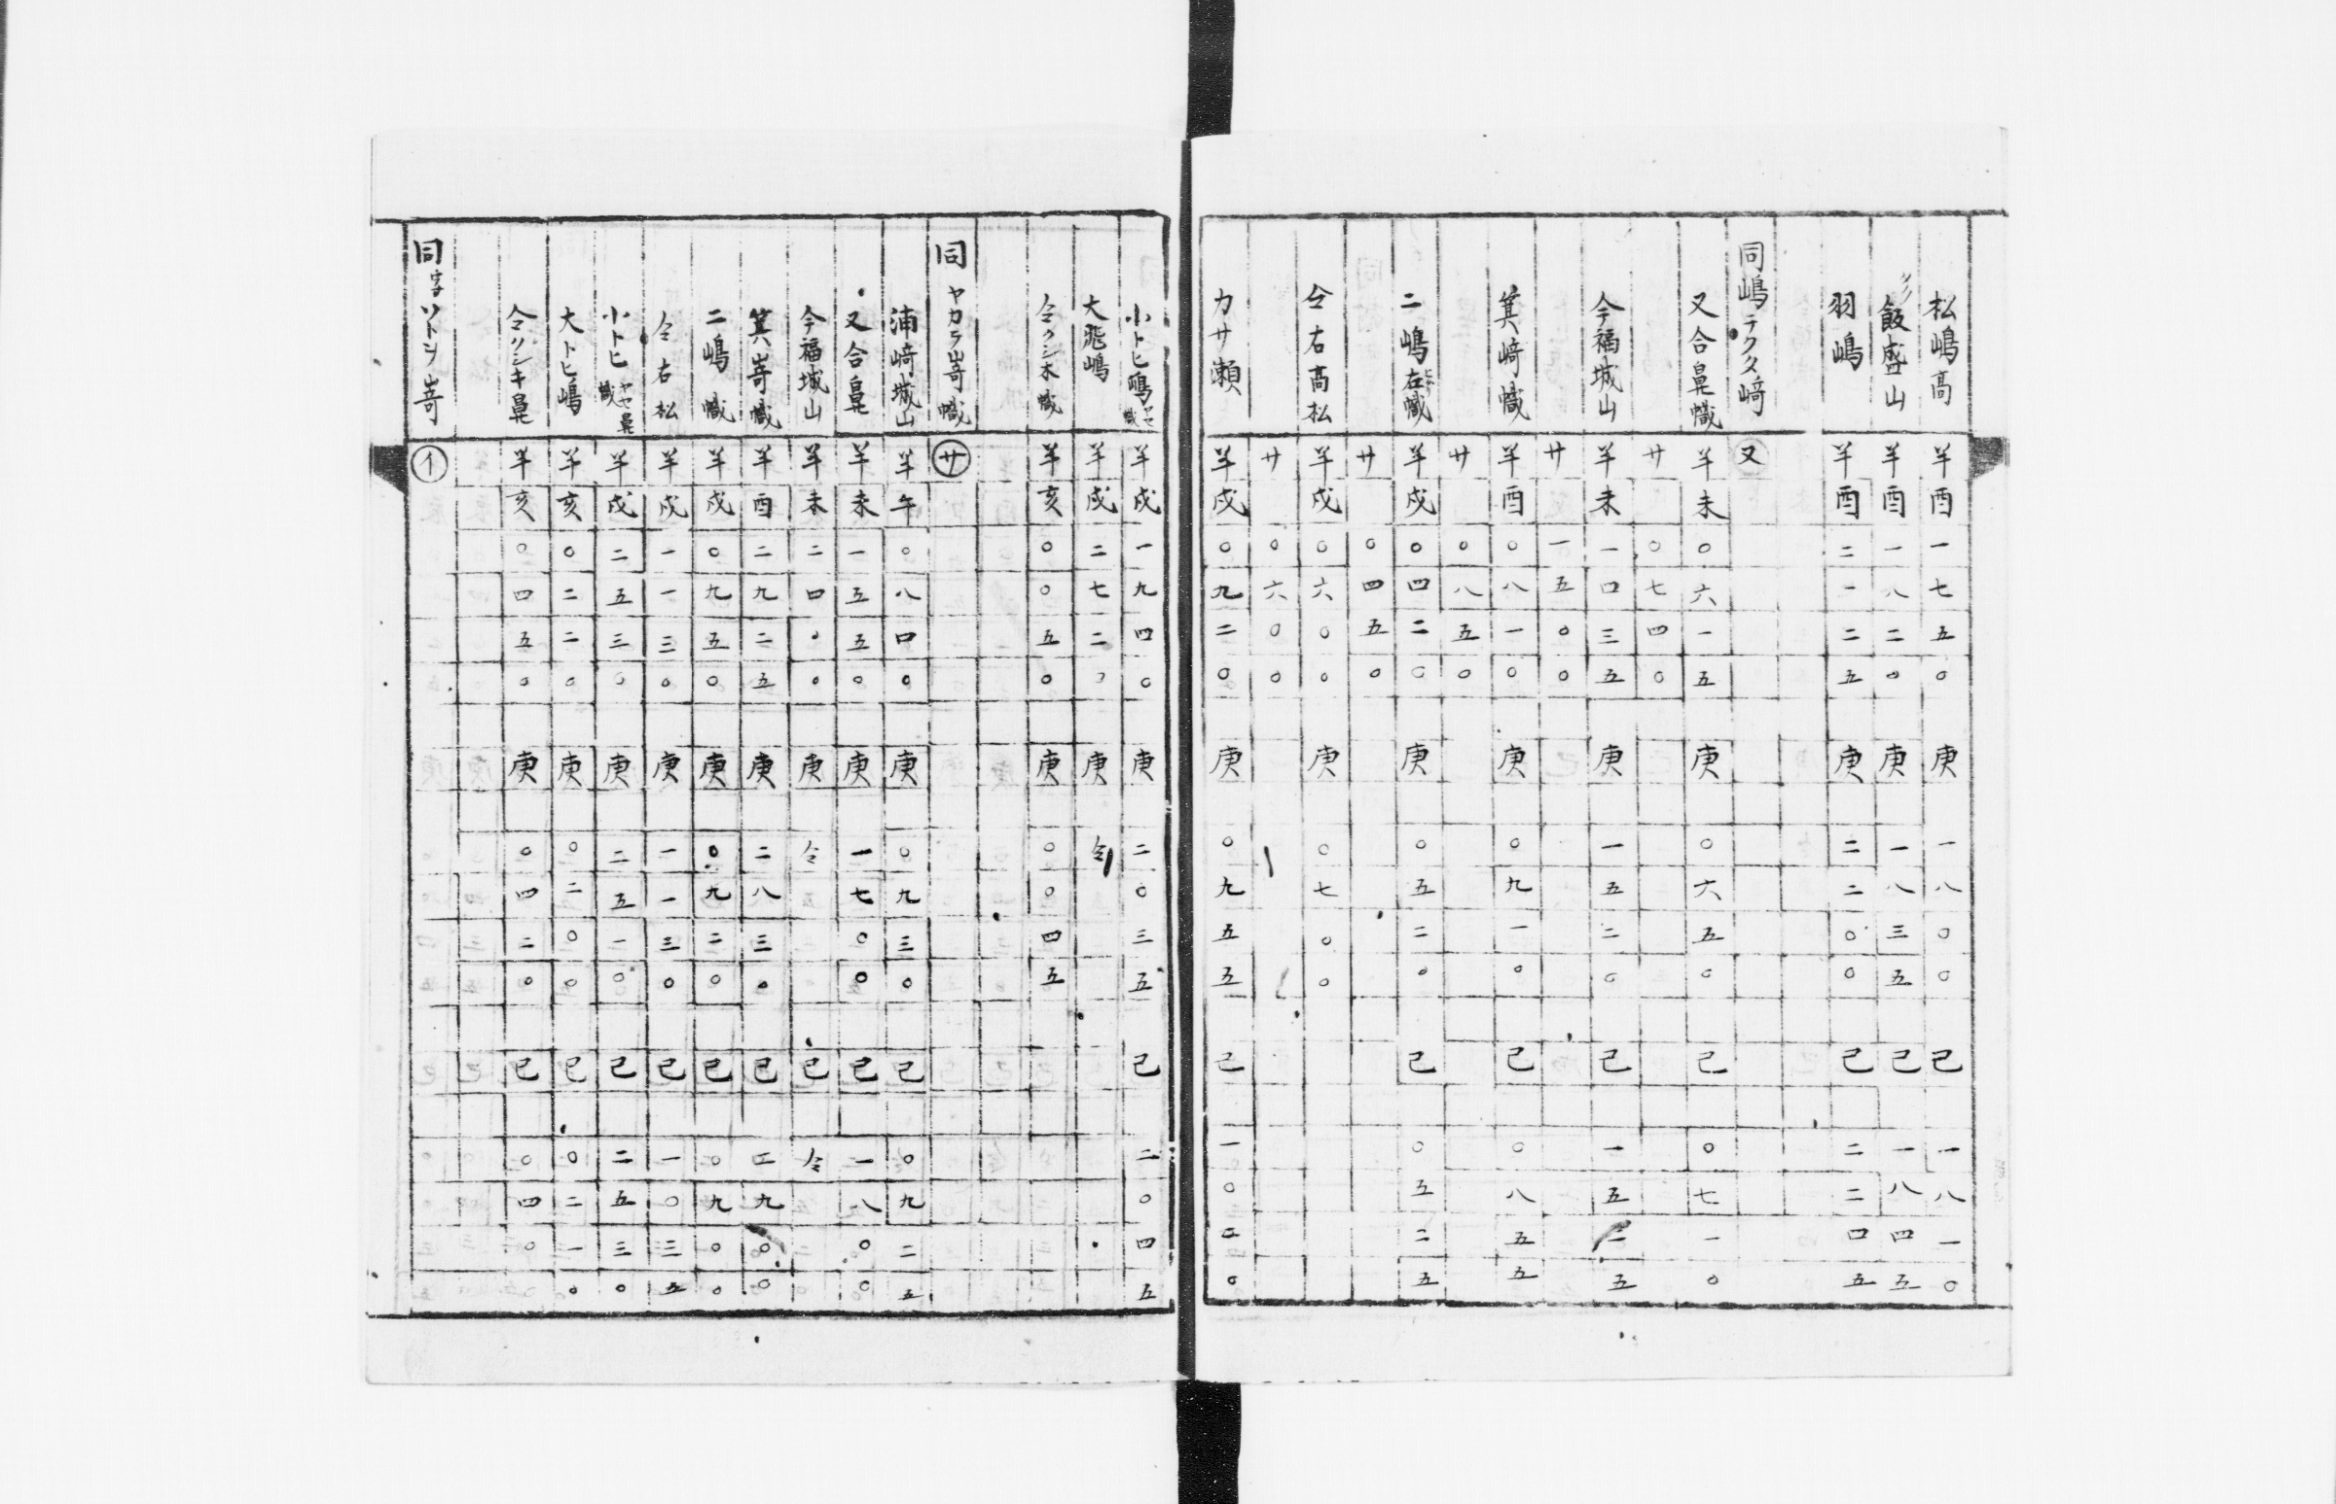 松嶋高 羊酉 一七五〇 庚 一八〇〇 己 一八一〇
飯盛山 羊酉 一八二〇 庚 一八三五 己 一八四五
羽嶋 羊酉 二一二五 庚 二二〇〇 己 二二四五
同嶋テクタ﨑 又
又合鼻幟 羊未 〇六一五 庚 〇六五〇 己 〇七一〇
サ 〇七四〇
今福城山 羊未 一四三五 庚 一五二〇 己 一五二五
サ 一五〇〇
箕﨑幟 羊酉 〇八一〇 庚 〇九一〇 己 〇八五五
サ 〇八五〇
二嶋右幟 羊戌 〇四二〇 庚 〇五二〇 己 〇五二五
サ 〇四五〇
仝右高松 羊戌 〇六〇〇 庚 〇七〇〇
サ 〇六〇〇
カサ瀬 羊戌 〇九二〇 庚 〇九五五 己 一〇二〇
小トヒ嶋ヤセ幟 羊戌 一九四〇 庚 二〇三五 己 二〇四五
大飛嶋 羊戌 二七二〇 庚 仝
仝クシ木幟 羊亥 〇〇五〇 庚 〇〇四五
同ヤカラ嵜幟 サ
浦﨑城山 羊午 〇八四〇 庚 〇九三〇 己 〇九二五
又合鼻 羊未 一五五〇 庚 一七〇〇 己 一八〇〇
今福城山 羊未 二四〇〇 庚 仝 己 仝
箕嵜幟 羊酉 二九二五 庚 二八三〇 己 二九〇〇
二嶋幟 羊戌 〇九五〇 庚 〇九二〇 己 〇九〇〇
仝右松 羊戌 一一三〇 庚 一一三〇 己 一〇三五
小トヒヤセ鼻幟 羊戌 二五三〇 庚 二五一〇 己 二五三〇
大トヒ嶋 羊亥 〇二二〇 庚 〇二〇〇 己 〇二一〇
仝クシキ鼻 羊亥 〇四五〇 庚 〇四二〇 己 〇四〇
同字ソトノ嵜 イ